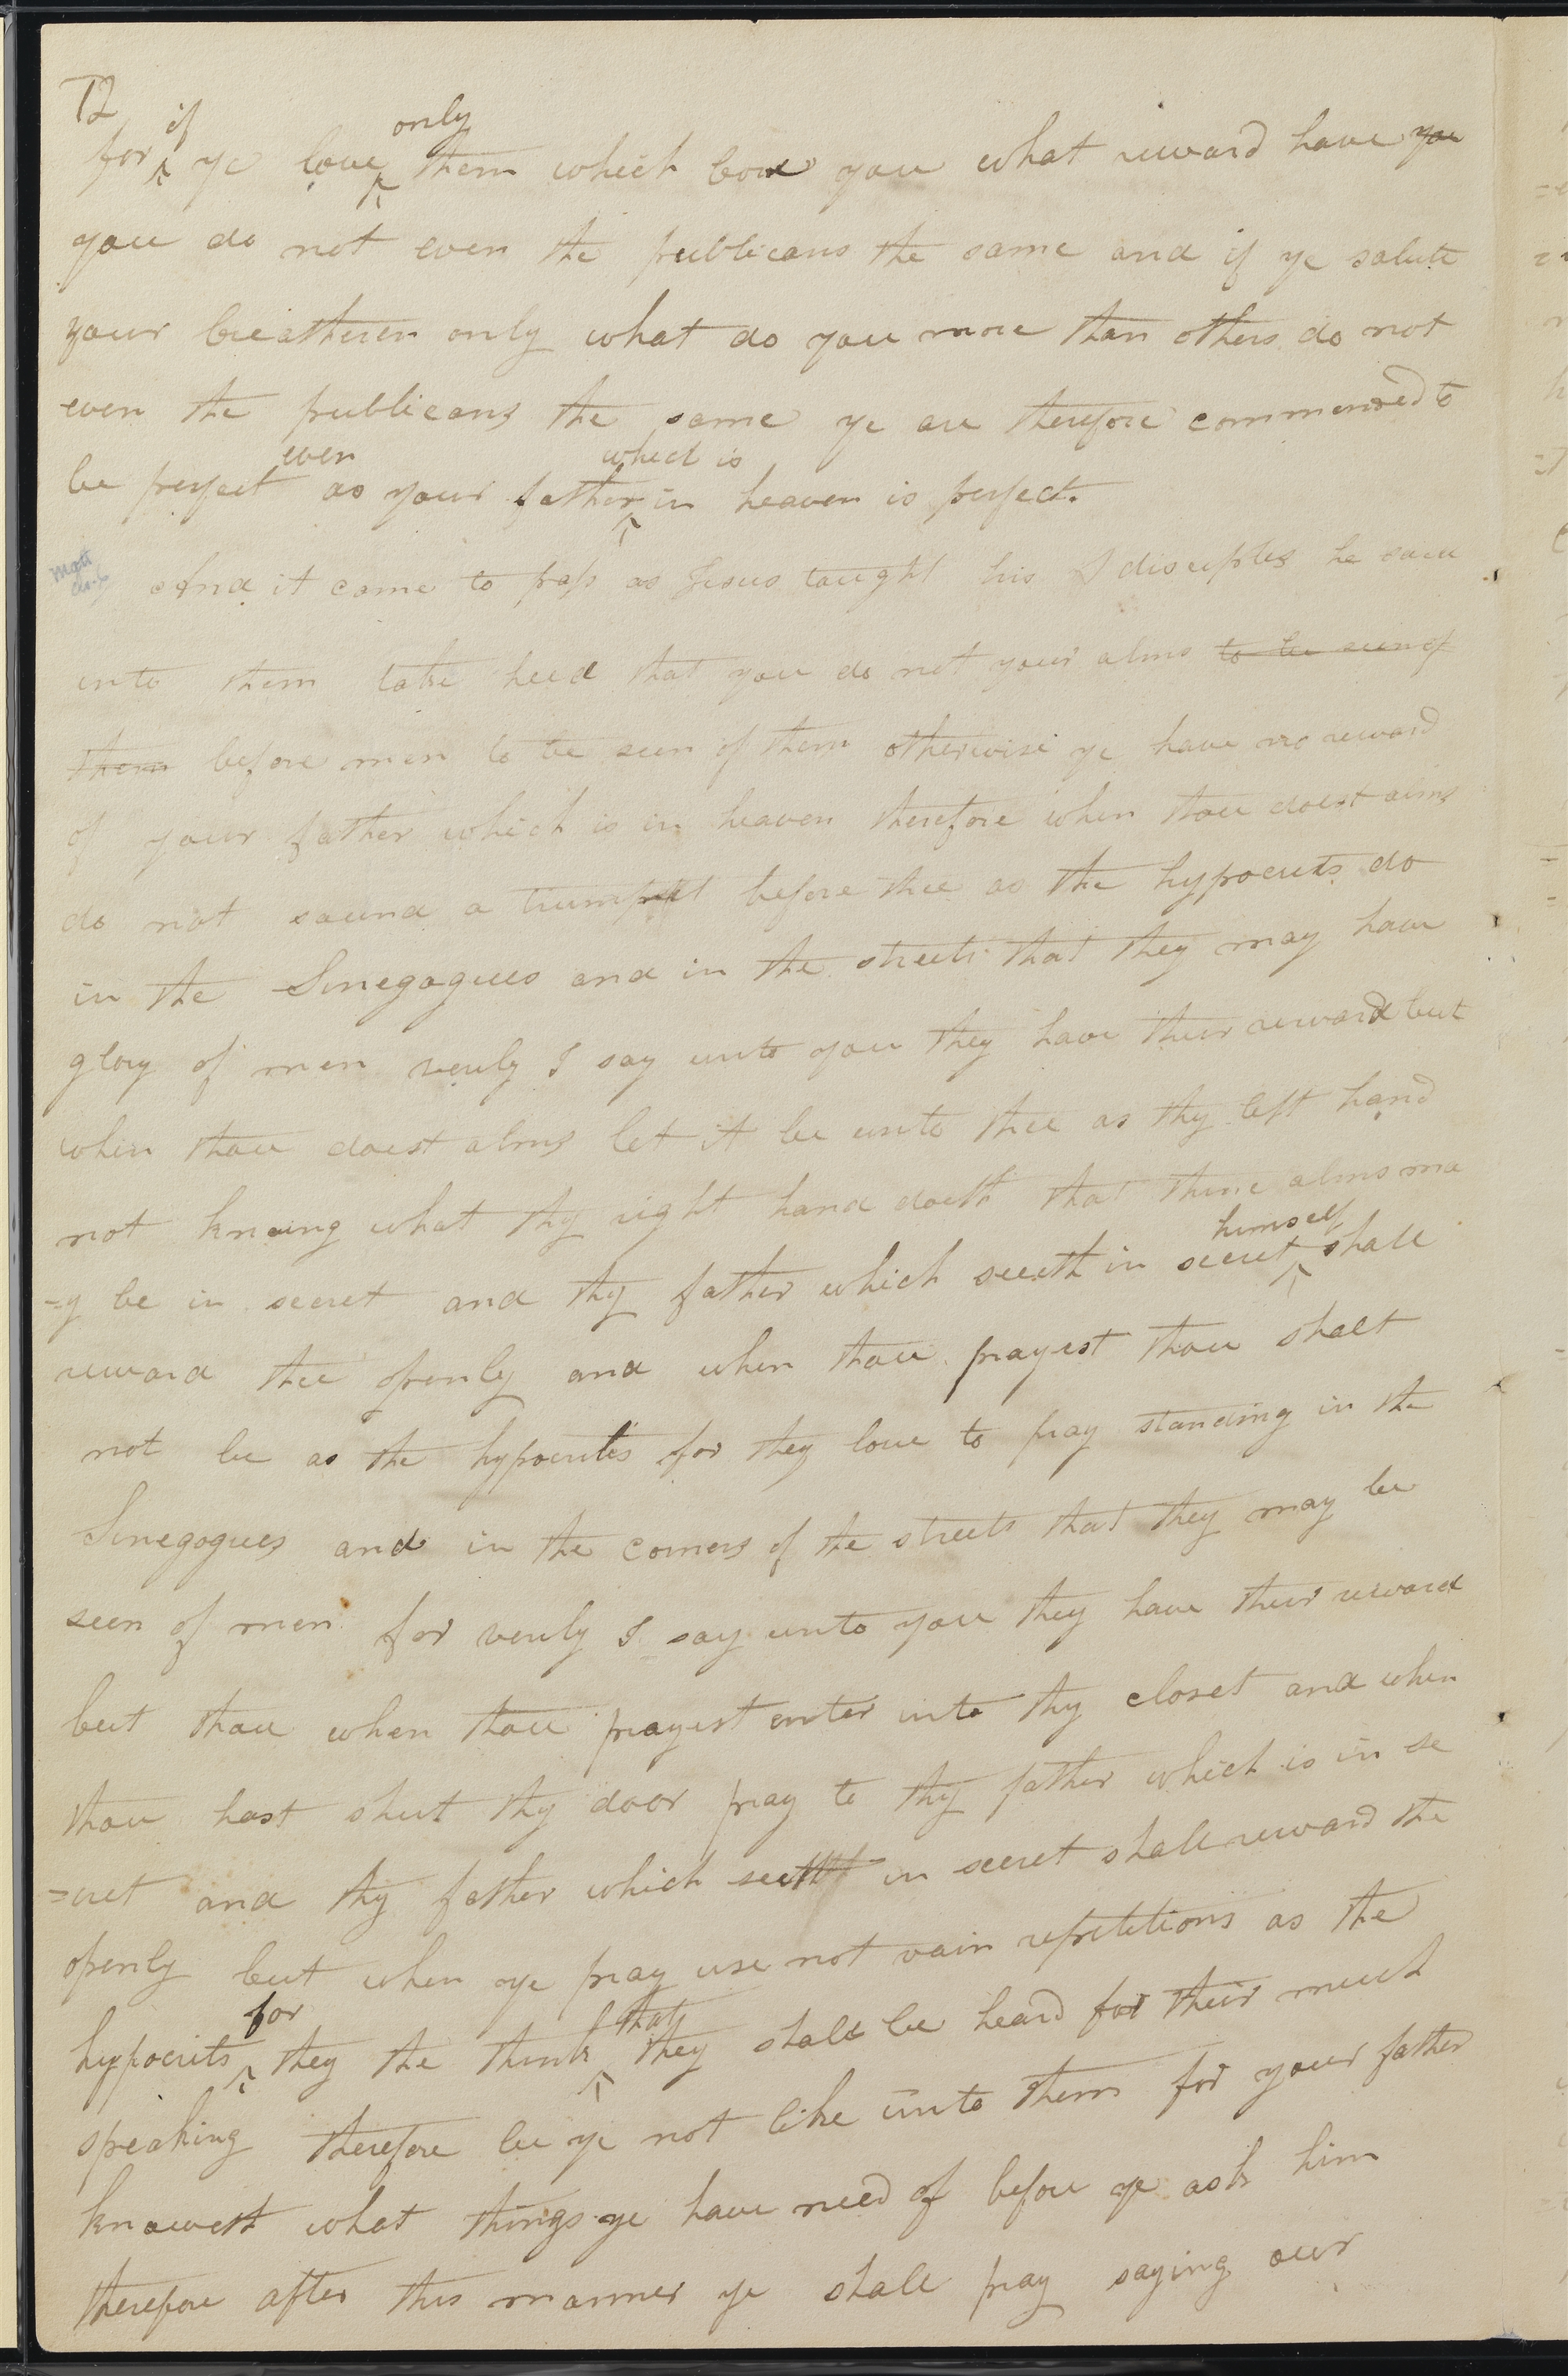 72
for if ye love only them which love you what reward have you
you do not even the publicans the same and if ye salute
your breatheren only what do you more than others do not
even the publicans the same ye are therefore commended to
be perfect even as your father which is in heaven is perfect.
And it came to pass as Jesus taught his disciples he said
unto them take heed that you do not your alms to be seen of
them before men to be seen of them otherwise ye have no reward
of your father which is in heaven therefore when thou doest alms
do not sound a trumpet before thee as the hypocrits do
in the Sinegogues and in the streets that they may have
glory of men verily I say unto you they have their reward but
when thou doest alms let it be unto thee as thy left hand
not knowing what thy right hand doeth that thine alms ma
=y be in secret and thy father which seeeth in secret himself shall
reward thee openly and when thou prayest thou shalt
not be as the hypocrites for they love to pray standing in the
Sinegogues and in the corners of the streets that they may be
seen of men for verily I say unto you they have their reward
but thou when thou prayest enter into thy closet and when
thou hast shut thy door pray to thy father which is in se
=cret and thy father which seeth in secret shall reward the
openly but when ye pray use not vain repetitions as the
hypocrits for they the think that they shall be heard for their much
speaking therefore be ye not like unto them for your father
knoweth what things ye have need of before ye ask him
therefore after this manner ye shall pray saying our